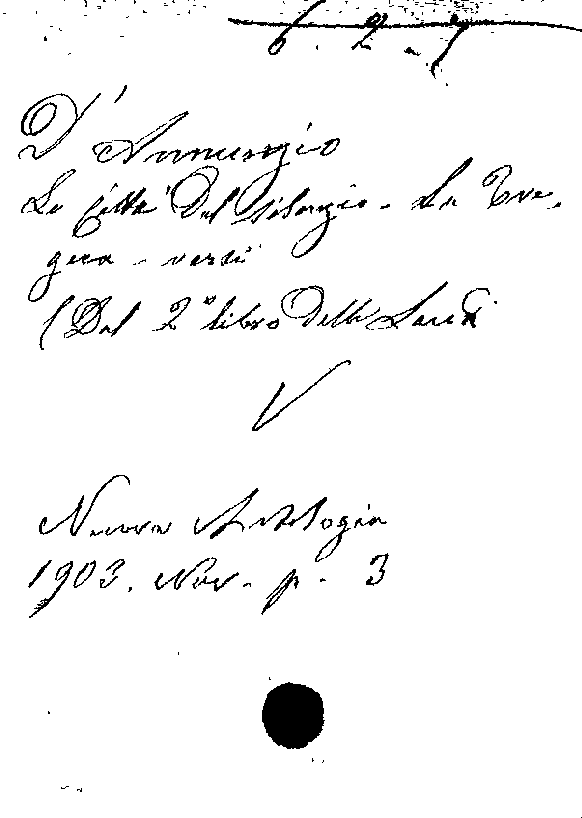 6. 2 - 7
D'Annunzio
Le Città del silenzio - La Tre,
gua - versi
(Dal 2° libro delle Laudi
V
Nuova Antologia
1903. Nov. p. 3